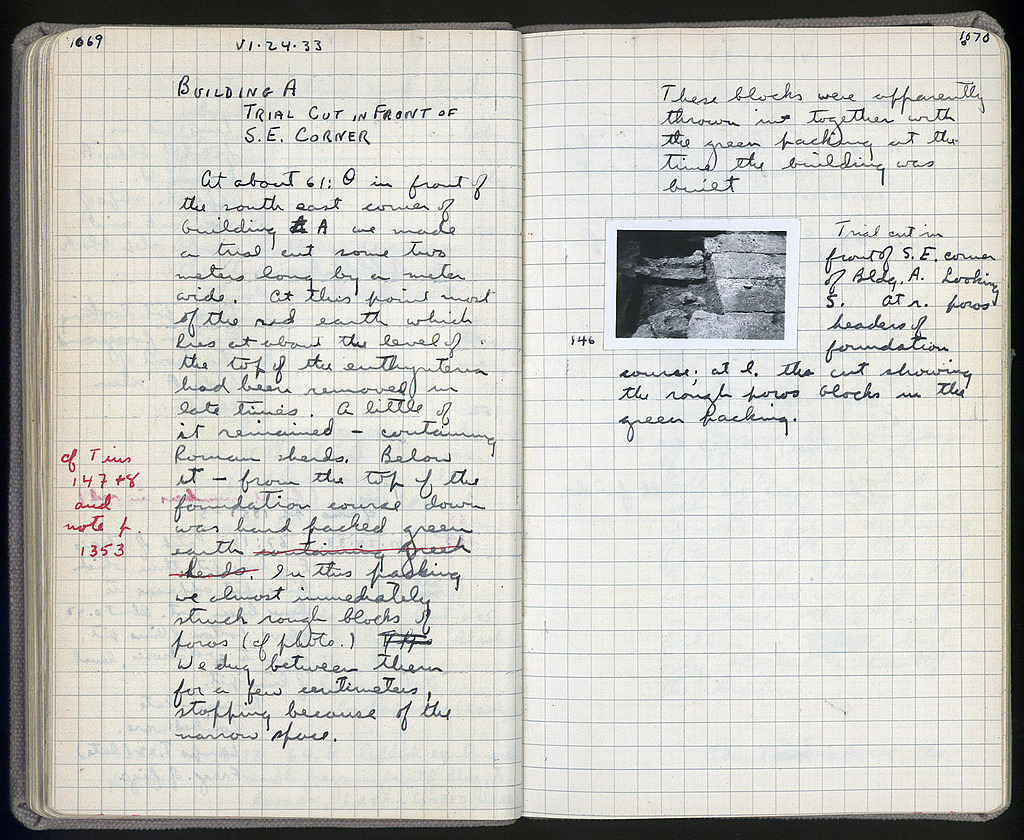 1069
VI·24·33
BUILDING A
TRIAL CUT IN FRONT OF
S.E. CORNER
At about 61: Θ in front of
the south east corner of
building A we made
a trial cut some two
meters long by a meter
wide. At this point most
of the red earth which
lies at about the level of
the top of the euthynteria
had been removed in
late times. A little of
it remained – containing
Roman sherds. Below
it – from the top of the
foundation course down
was hard packed green
earth containing Greek
sherds. In this packing
we almost immediately
struck rough blocks of
poros (cf photo.)
We dug between them
for a few centimeters,
stopping because of the
narrow space.
cf Tins
147+8
and
note p.
1353
1070
These blocks were apparently
thrown in together with
the green packing at the
time the building was
built
146
Trial cut in
front of S.E. corner
of Bldg. A. Looking
S. At r. poros
headers of
foundation
course; at l. the cut showing
the rough poros blocks in the
green packing.